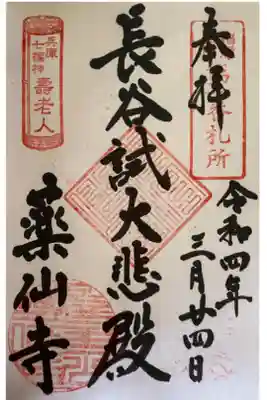 奉拝
令和四年
三月廿四日
長谷試大悲殿
兵庫
七福神
壽老人
薬仙寺